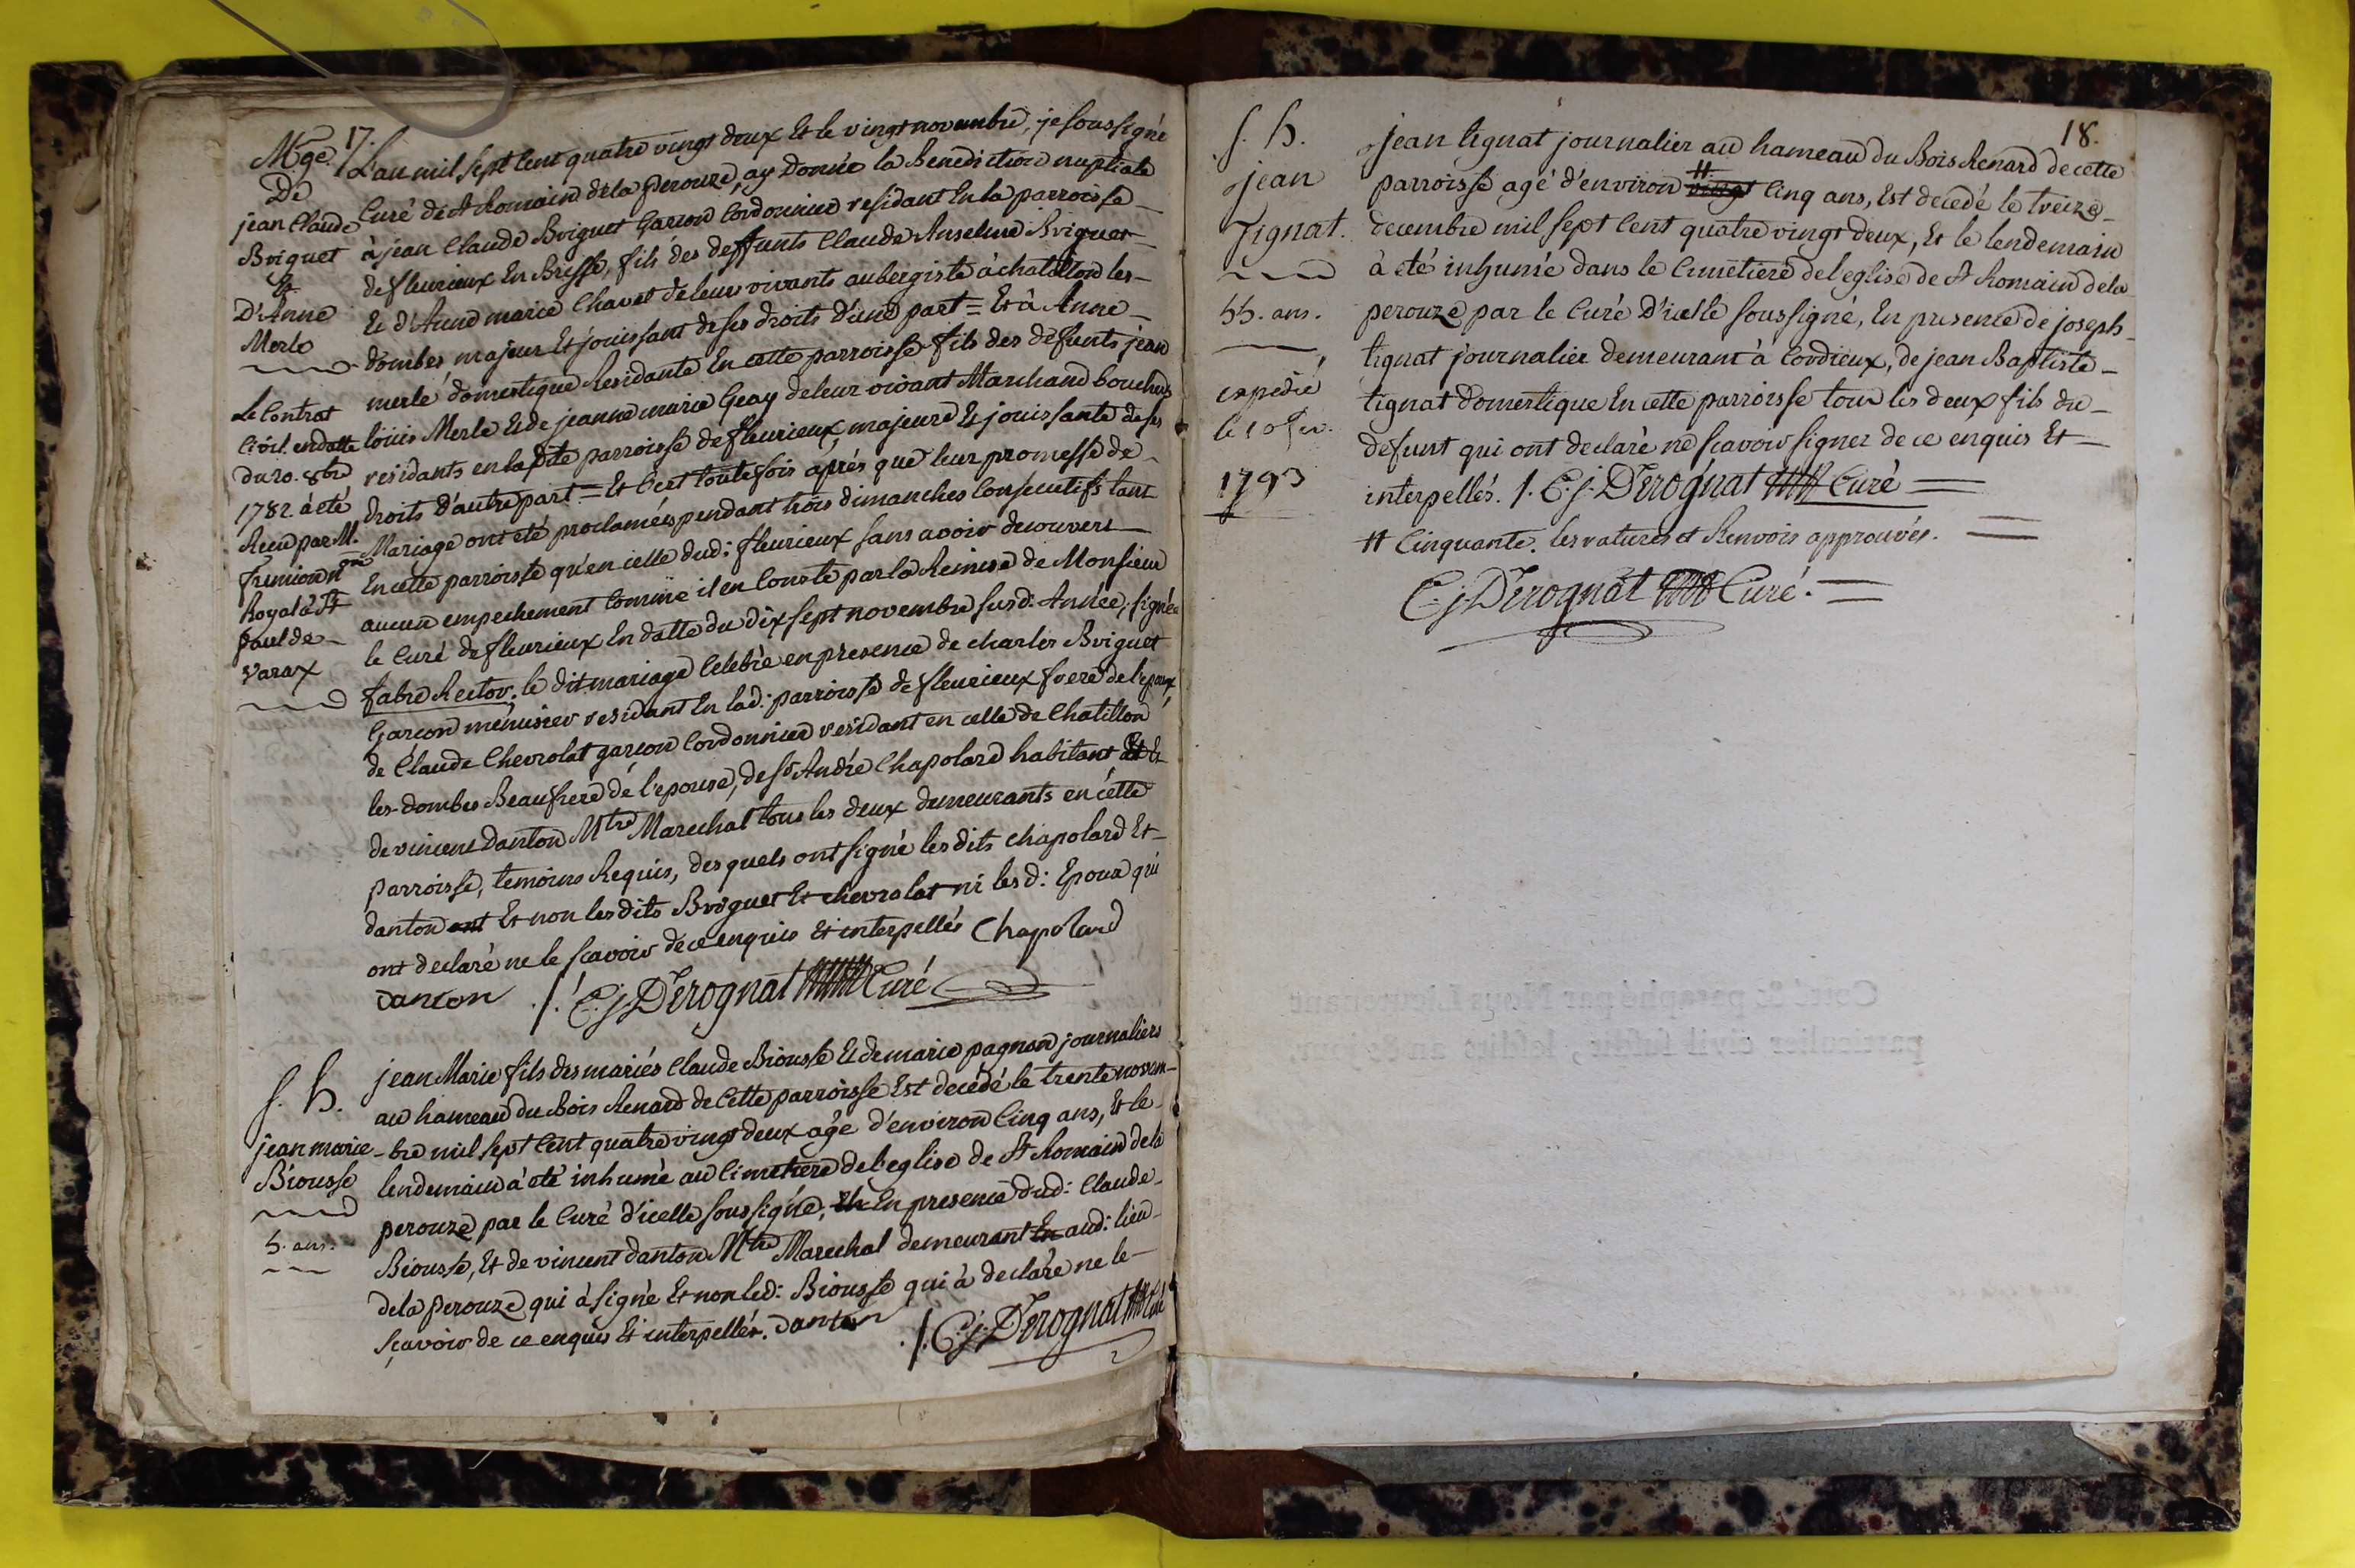 17.
Mge.
De
jean Claude
Briguet
Et
D'Anne
Merle
Le Contrat
Civil en datte
du 20. 8bre
1782 à été
Recu par M.
fremion nre
Royal à St
paul de
varax
L'an mil sept cent quatre vingt deux Et le vingt novembre, je soussigné
Curé de St Romain de la perouze, ay Donnée la Benediction nuptiale
à jean Claude Briguet Garcon Cordonnier residant En la parroisse
de fleurieux En Bresse, fils des deffunts Claude Anselme Briguet
Et d'Anne marie Chavet de leurs vivants aubergiste à chatillon les
dombes, majeur Et jouissant de ses droits d'une part = Et à Anne
merle domestique Residante En cette parroisse fils des défunts jean
loüis Merle Et de jeanne marie Geay de leur vivant Marchand boucher
residants en la dte parroisse de fleurieux, majeure Et jouissante de ses
droits d'autre part = Et C'est toutefois aprés que leur promesse de
Mariage ont été proclamées pendant trois dimanches Consecutifs tant
En cette parroisse qu'en celle dud: fleurieux sans avoir decouvert
aucun empechement Comme il en Conste par la Remise de Monsieur
le Curé de fleurieux En datte du dix sept novembre susd: Année, signée
fabre Rector. le dit mariage Celebré en présence de charles Briguet
Garcon menuisier residant En lad: parroisse de fleurieux frere de l'epoux,
de Claude Chevrolat garcon Cordonnier residant en celle de Chatillon
les-dombes Beaufrere de l'epouse, de sr André Chapolard habitant Et
de vincent Danton Mtre Marechal tous les deux demeurants en cette
parroisse, temoins Requis, des quels ont signé les dits chapolard Et
danton ont Et non les dits Briguet Et chevrolat ni les d: Epoux qui
ont declaré ne le scavoir de ce enquis Et interpellés Chapolard
danton ./. C. j. Derognat Curé
S. h.
jean marie
Biousse
5. ans.
jean Marie fils des mariés Claude Biousse Et de marie pagnon journaliers
au hameau du Bois Renard de Cette parroisse Est decédé le trente novem-
-bre mil sept Cent quatre vingt deux agé d'environ Cinq ans, Et le
lendemain à été inhumé au Cimetiere de l'eglise de St Romain de la
perouze par le Curé d'icelle soussigné, En presence dud: Claude
Biousse, Et de vincent danton Mtre Marechal demeurant En aud: lieu
de la perouze qui à signé Et non led: Biousse qui à declaré ne le
sçavoir de ce enquis Et interpellés. danton ./. C. j. Derognat Curé
18.
S. h.
jean
Tignat.
55. ans.
expedié
le 10 fev.
1793
jean tignat journalier au hameau du Bois Renard de cette
parroisse agé d'environ vingt # Cinq ans, Est decedé le treize
decembre mil sept Cent quatre vingt deux, Et le lendemain
à été inhumé dans le Cimetiere de l'eglise de St Romain de la
perouze par le Curé D'icelle soussigné, En presence de joseph
tignat journalier demeurant à Cordieux, de jean Baptiste
tignat domestique En cette parroisse tous les deux fils du
défunt qui ont declaré ne scavoir signer de ce enquis Et
interpellés. /. C. j. Derognat Curé
# Cinquante. les ratures et Renvois approuvés.
C. j. Derognat Curé.